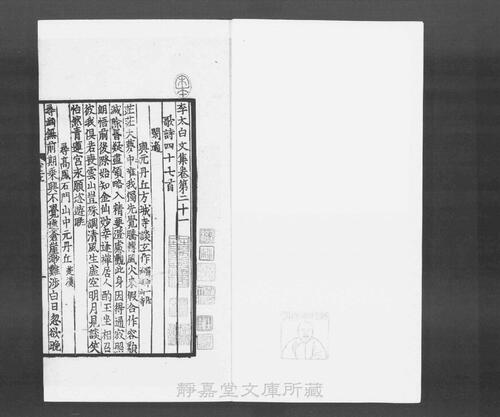 李太白文集卷第二十一
歌詩四十七首
閑適
與元丹丘方城寺談玄作
茫茫大夢中惟我獨先覺騰轉風火來假合作容貌
滅除昏疑盡領略入精要澄慮觀此身因得通寂照
朗悟前後際始知金仙妙幸逢禪居人酌玉坐相召
彼我俱若喪雲山豈殊調清風生虛空明月見談笑
怡然青蓮宮永願恣遊眺
尋高鳳石門山中元丹丘
尋幽無前期乘興不覺遠蒼崖渺難涉白日忽欲晚
靜嘉堂文庫所藏